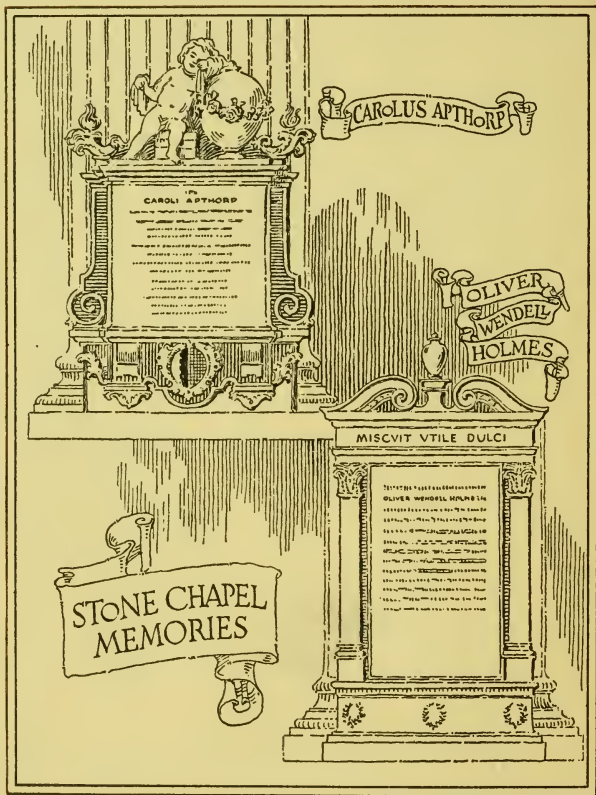 CAROLUS APTHORP
CAROLI APTHORP
OLIVER
WENDELL
HOLMES
MISCVIT VTILE DULCI
OLIVER WENDELL HOLMES
STONE CHAPEL
MEMORIES